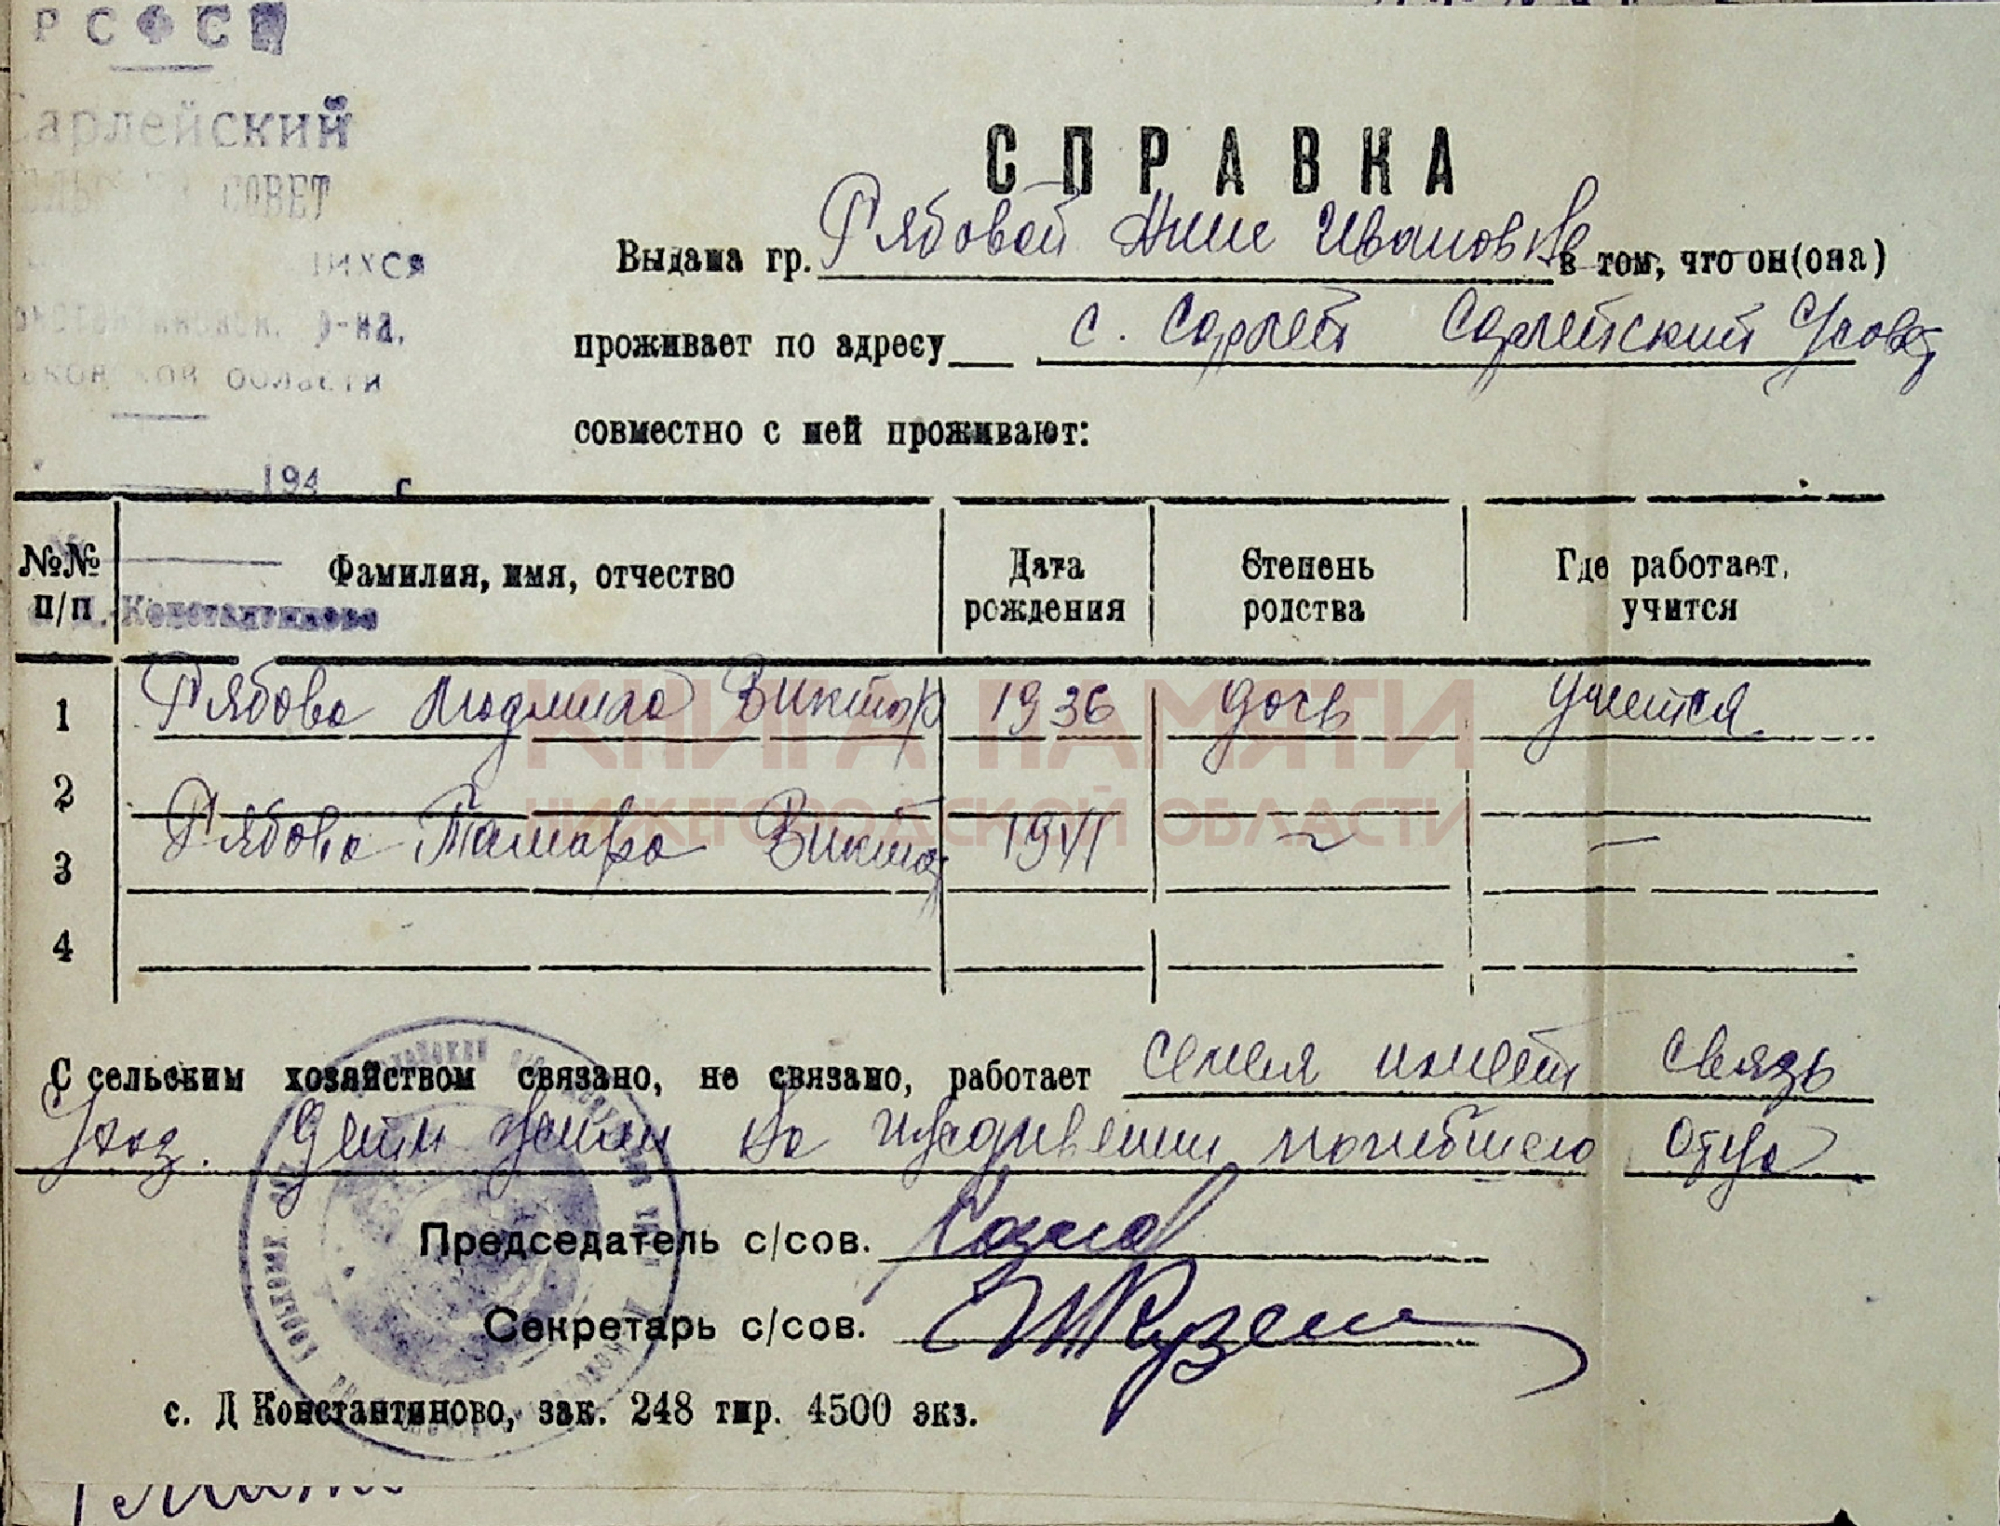 РСФСР
Сарлейский
СЕЛЬСКИЙ СОВЕТ
ихся
Константиновск. р-на,
Горьковской области
194 г
Константиново
СПРАВКА
Выдана гр. Рябовой Анне Ивановне в том, что он(она)
проживает по адресу с. Сарлей Сарлейский с/совет
совместно с ней проживают:
№№ п/п Фамилия, имя, отчество Дата рождения Степень родства Где работает, учится
1 Рябова Людмила Виктор 1936 дочь учится
2
3 Рябова Тамара Виктор 1941 〃 —
4
КНИГА ПАМЯТИ
НИЖЕГОРОДСКОЙ ОБЛАСТИ
С сельским хозяйством связано, не связано, работает семья имеет связь
с/хоз. Дети были на иждивении погибшего отца
Председатель с/сов.
Секретарь с/сов.
с. Д Константиново, зак. 248 тир. 4500 экз.